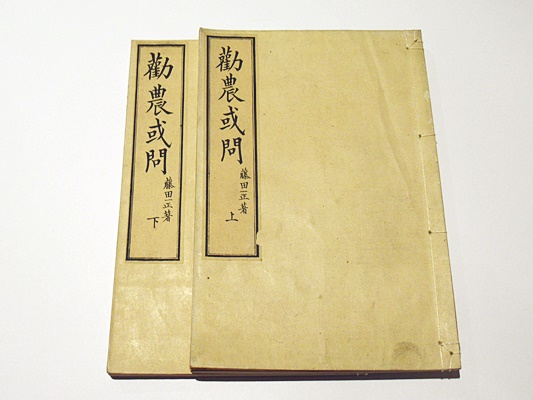 勸農或問
藤田一正著
上
勸農或問
藤田一正著
下